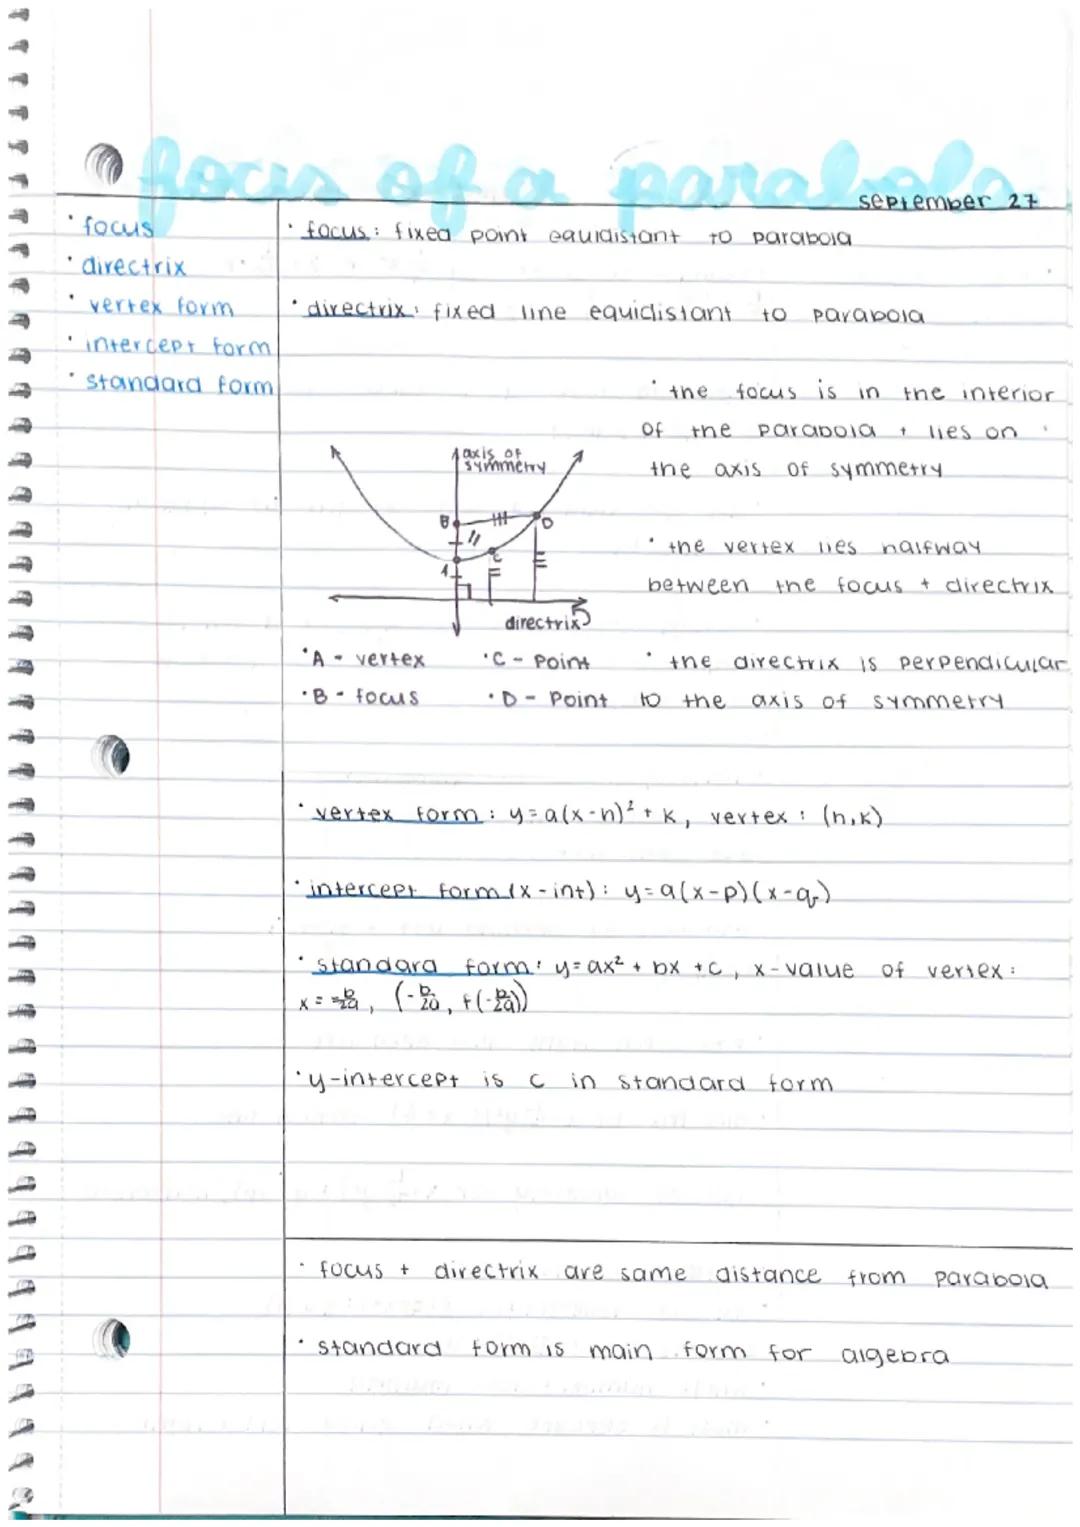 focus of a parabola
september 27
• focus
• directrix
• vertex form
• intercept form
• standard form
• focus: fixed point equidistant to parabola
• directrix: fixed line equidistant to parabola
• the focus is in the interior
of the parabola + lies on
the axis of symmetry
• the vertex lies halfway
between the focus + directrix
• the directrix is perpendicular
to the axis of symmetry
axis of
symmetry
B
D
C
A
directrix
• A - vertex
• C - Point
• B - focus
• D - Point
• vertex form: y=a(x-h)² + k, vertex: (h,k)
• intercept form (x-int): y=a(x-p)(x-q)
• standard form: y=ax² + bx +c, x-value of vertex:
x = -b/2a, (-b/2a, f(-b/2a))
• y-intercept is c in standard form
• focus + directrix are same distance from parabola
• standard form is main form for algebra